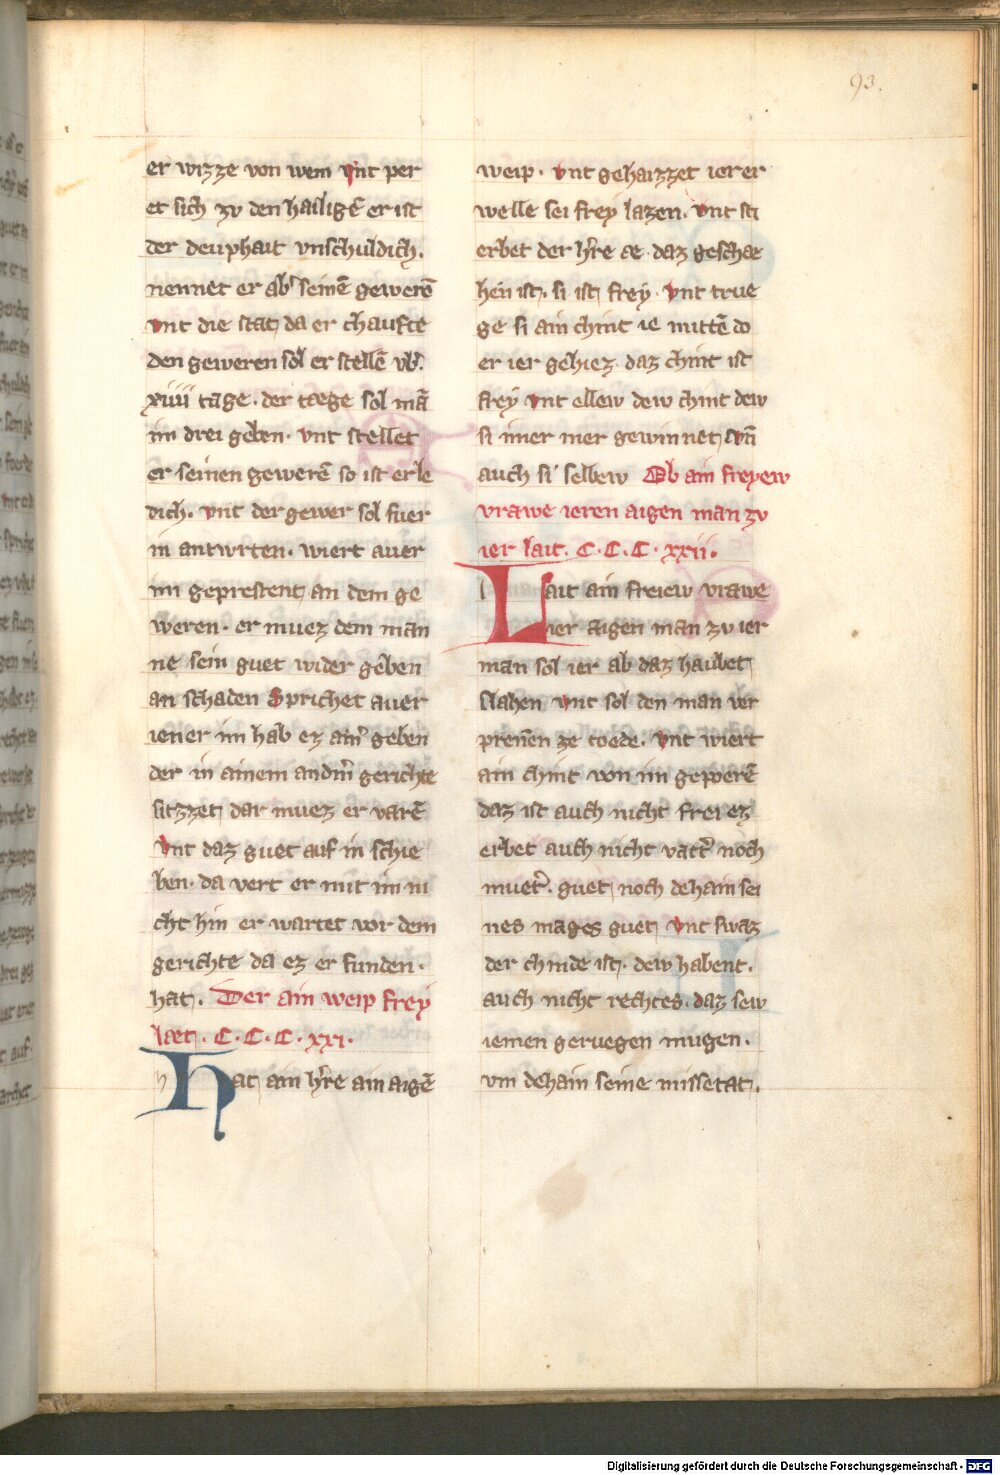 93.
er wizze von wem vnt per
et sich zv den hailigē er ist
der deuphait vnschuldich.
nennet er ab᷑ seinē gewerē
vnt die stat da er chaufte
den geweren sol er stellē vb᷑.
xiiii tage. der tæge sol mā
im drei geben. vnt stellet
er seinen gewerē so ist er le
dich. vnt der gewer sol fuer
in antwrten. wiert auer
im geprestent an dem ge
weren. er muez dem man
ne sein guet wider geben
an schaden Sprichet auer
iener im hab ez ain᷑ geben
der in ainem andm᷑ gerichte
sitzzet dar muez er varē
Vnt daz guet auf in schie
ben. da vert er mit im ni
cht hin er wartet vor dem
gerichte da ez er funden.
hat. Der ain weip frey
læt. C. C. C. xxi.
Hat ain h᷑re ain aigē
weip. vnt gehaizzet ier er
welle sei frey lazen. vnt sti
erbet der h᷑re æ. daz geschæ
hen ist. si ist frey. vnt true
ge si ain chint ie mittē do
er ier gehiez. daz chint ist
frey vnt ellew dew chint dew
si imer mer gewinnet vn̄
auch si selbew Ob ain freyew
vrawe ieren aigen man zv
ier lait. C. C. C. xxii.
Lait ain freiew vrawe
ier aigen man zv ier
man sol ier ab daz haubet
slahen vnt sol den man ver
prenēn ze toede. vnt wiert
ain chint von im geporē
daz ist auch nicht frei ez
erbet auch nicht vatt᷑ noch
muet᷑. guet noch dehain sei
nes mages guet vnt swaz
der chinde ist. dew habent.
auch nicht rechtes. daz sew
iemen geruegen mugen.
vm dehain seine missetat.
Digitalisierung gefördert durch die Deutsche Forschungsgemeinschaft - DFG